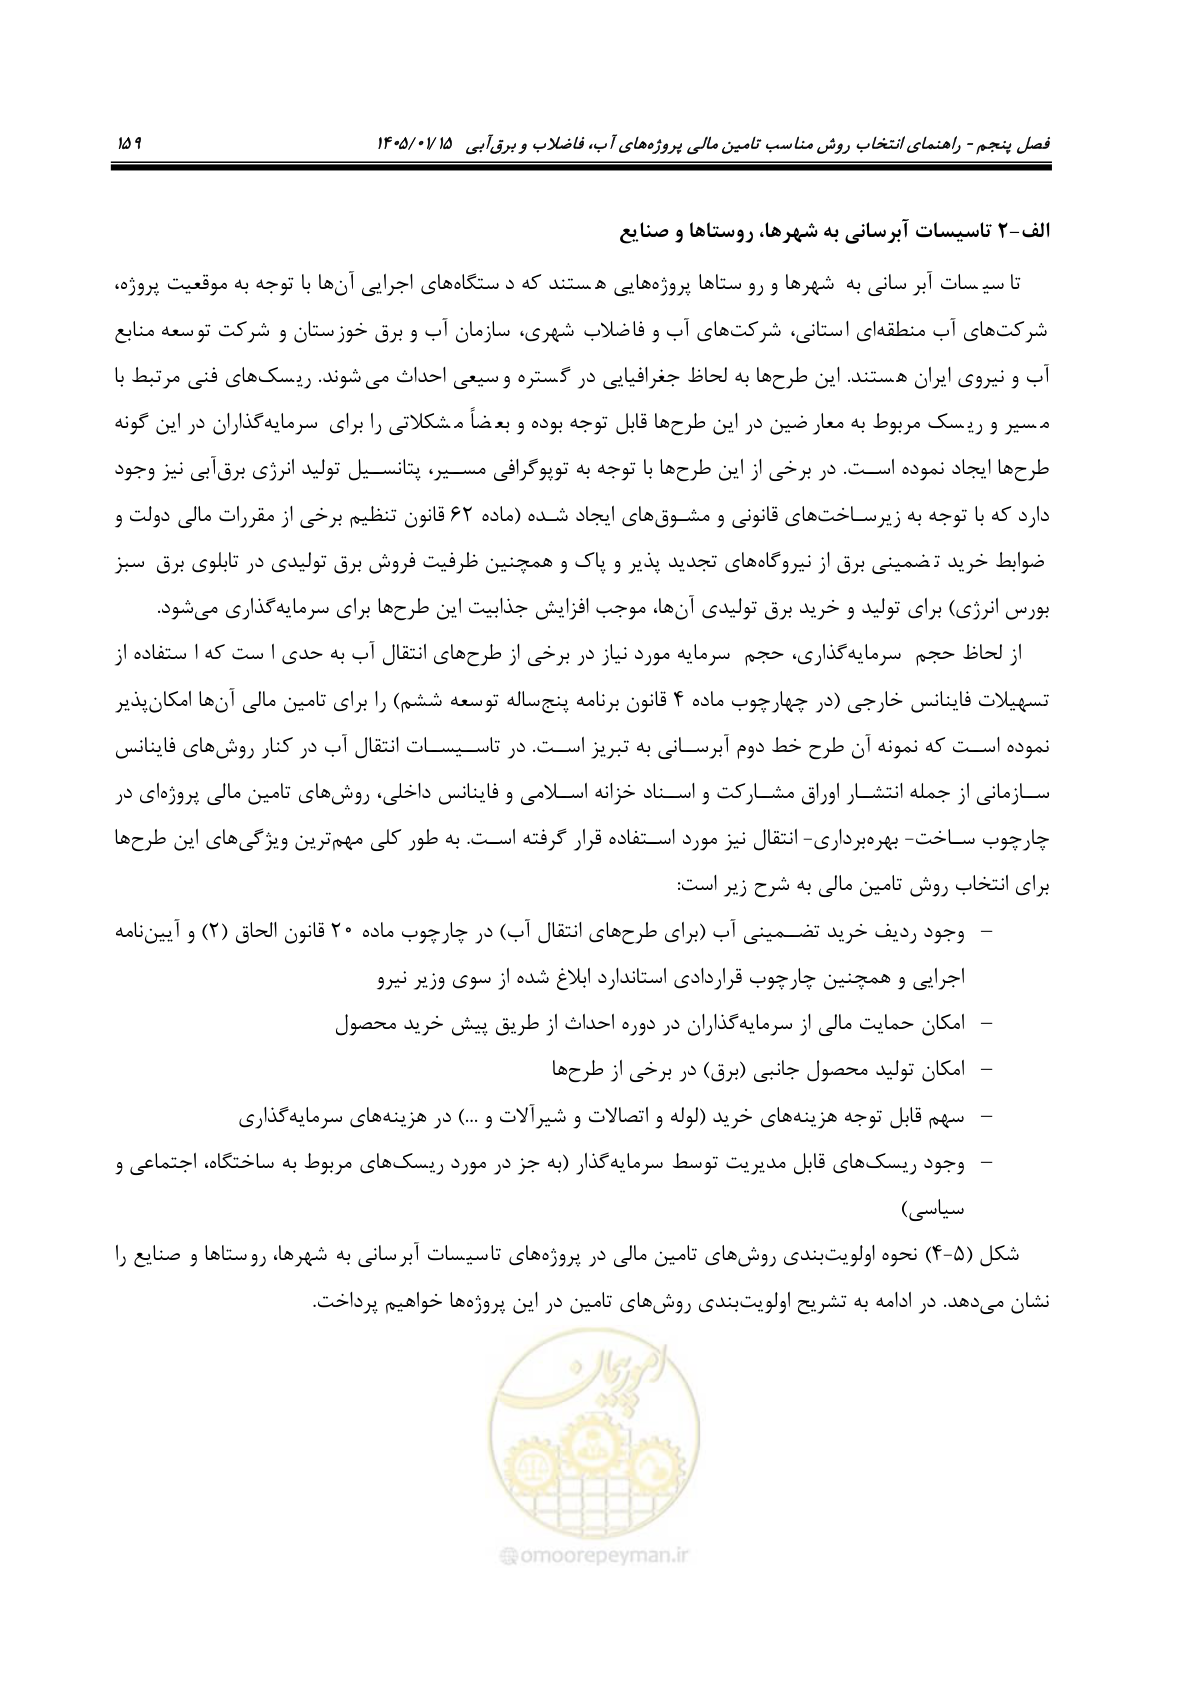 فصل پنجم - راهنمای انتخاب روش مناسب تامین مالی پروژه‌های آب، فاضلاب و برق‌آبی ۱۴۰۵/۰۱/۱۵ ۱۵۹
الف-۲ تاسیسات آبرسانی به شهرها، روستاها و صنایع
تاسیسات آبرسانی به شهرها و روستاها پروژه‌هایی هستند که دستگاه‌های اجرایی آن‌ها با توجه به موقعیت پروژه،
شرکت‌های آب منطقه‌ای استانی، شرکت‌های آب و فاضلاب شهری، سازمان آب و برق خوزستان و شرکت توسعه منابع
آب و نیروی ایران هستند. این طرح‌ها به لحاظ جغرافیایی در گستره وسیعی احداث می‌شوند. ریسک‌های فنی مرتبط با
مسیر و ریسک مربوط به معارضین در این طرح‌ها قابل توجه بوده و بعضاً مشکلاتی را برای سرمایه‌گذاران در این گونه
طرح‌ها ایجاد نموده است. در برخی از این طرح‌ها با توجه به توپوگرافی مسیر، پتانسیل تولید انرژی برق‌آبی نیز وجود
دارد که با توجه به زیرساخت‌های قانونی و مشوق‌های ایجاد شده (ماده ۶۲ قانون تنظیم برخی از مقررات مالی دولت و
ضوابط خرید تضمینی برق از نیروگاه‌های تجدید پذیر و پاک و همچنین ظرفیت فروش برق تولیدی در تابلوی برق سبز
بورس انرژی) برای تولید و خرید برق تولیدی آن‌ها، موجب افزایش جذابیت این طرح‌ها برای سرمایه‌گذاری می‌شود.
از لحاظ حجم سرمایه‌گذاری، حجم سرمایه مورد نیاز در برخی از طرح‌های انتقال آب به حدی است که استفاده از
تسهیلات فاینانس خارجی (در چهارچوب ماده ۴ قانون برنامه پنج‌ساله توسعه ششم) را برای تامین مالی آن‌ها امکان‌پذیر
نموده است که نمونه آن طرح خط دوم آبرسانی به تبریز است. در تاسیسات انتقال آب در کنار روش‌های فاینانس
سازمانی از جمله انتشار اوراق مشارکت و اسناد خزانه اسلامی و فاینانس داخلی، روش‌های تامین مالی پروژه‌ای در
چارچوب ساخت- بهره‌برداری- انتقال نیز مورد استفاده قرار گرفته است. به طور کلی مهم‌ترین ویژگی‌های این طرح‌ها
برای انتخاب روش تامین مالی به شرح زیر است:
– وجود ردیف خرید تضمینی آب (برای طرح‌های انتقال آب) در چارچوب ماده ۲۰ قانون الحاق (۲) و آیین‌نامه
اجرایی و همچنین چارچوب قراردادی استاندارد ابلاغ شده از سوی وزیر نیرو
– امکان حمایت مالی از سرمایه‌گذاران در دوره احداث از طریق پیش خرید محصول
– امکان تولید محصول جانبی (برق) در برخی از طرح‌ها
– سهم قابل توجه هزینه‌های خرید (لوله و اتصالات و شیرآلات و ...) در هزینه‌های سرمایه‌گذاری
– وجود ریسک‌های قابل مدیریت توسط سرمایه‌گذار (به جز در مورد ریسک‌های مربوط به ساختگاه، اجتماعی و
سیاسی)
شکل (۵-۴) نحوه اولویت‌بندی روش‌های تامین مالی در پروژه‌های تاسیسات آبرسانی به شهرها، روستاها و صنایع را
نشان می‌دهد. در ادامه به تشریح اولویت‌بندی روش‌های تامین در این پروژه‌ها خواهیم پرداخت.
امور پیمان
@omoorepeyman.ir